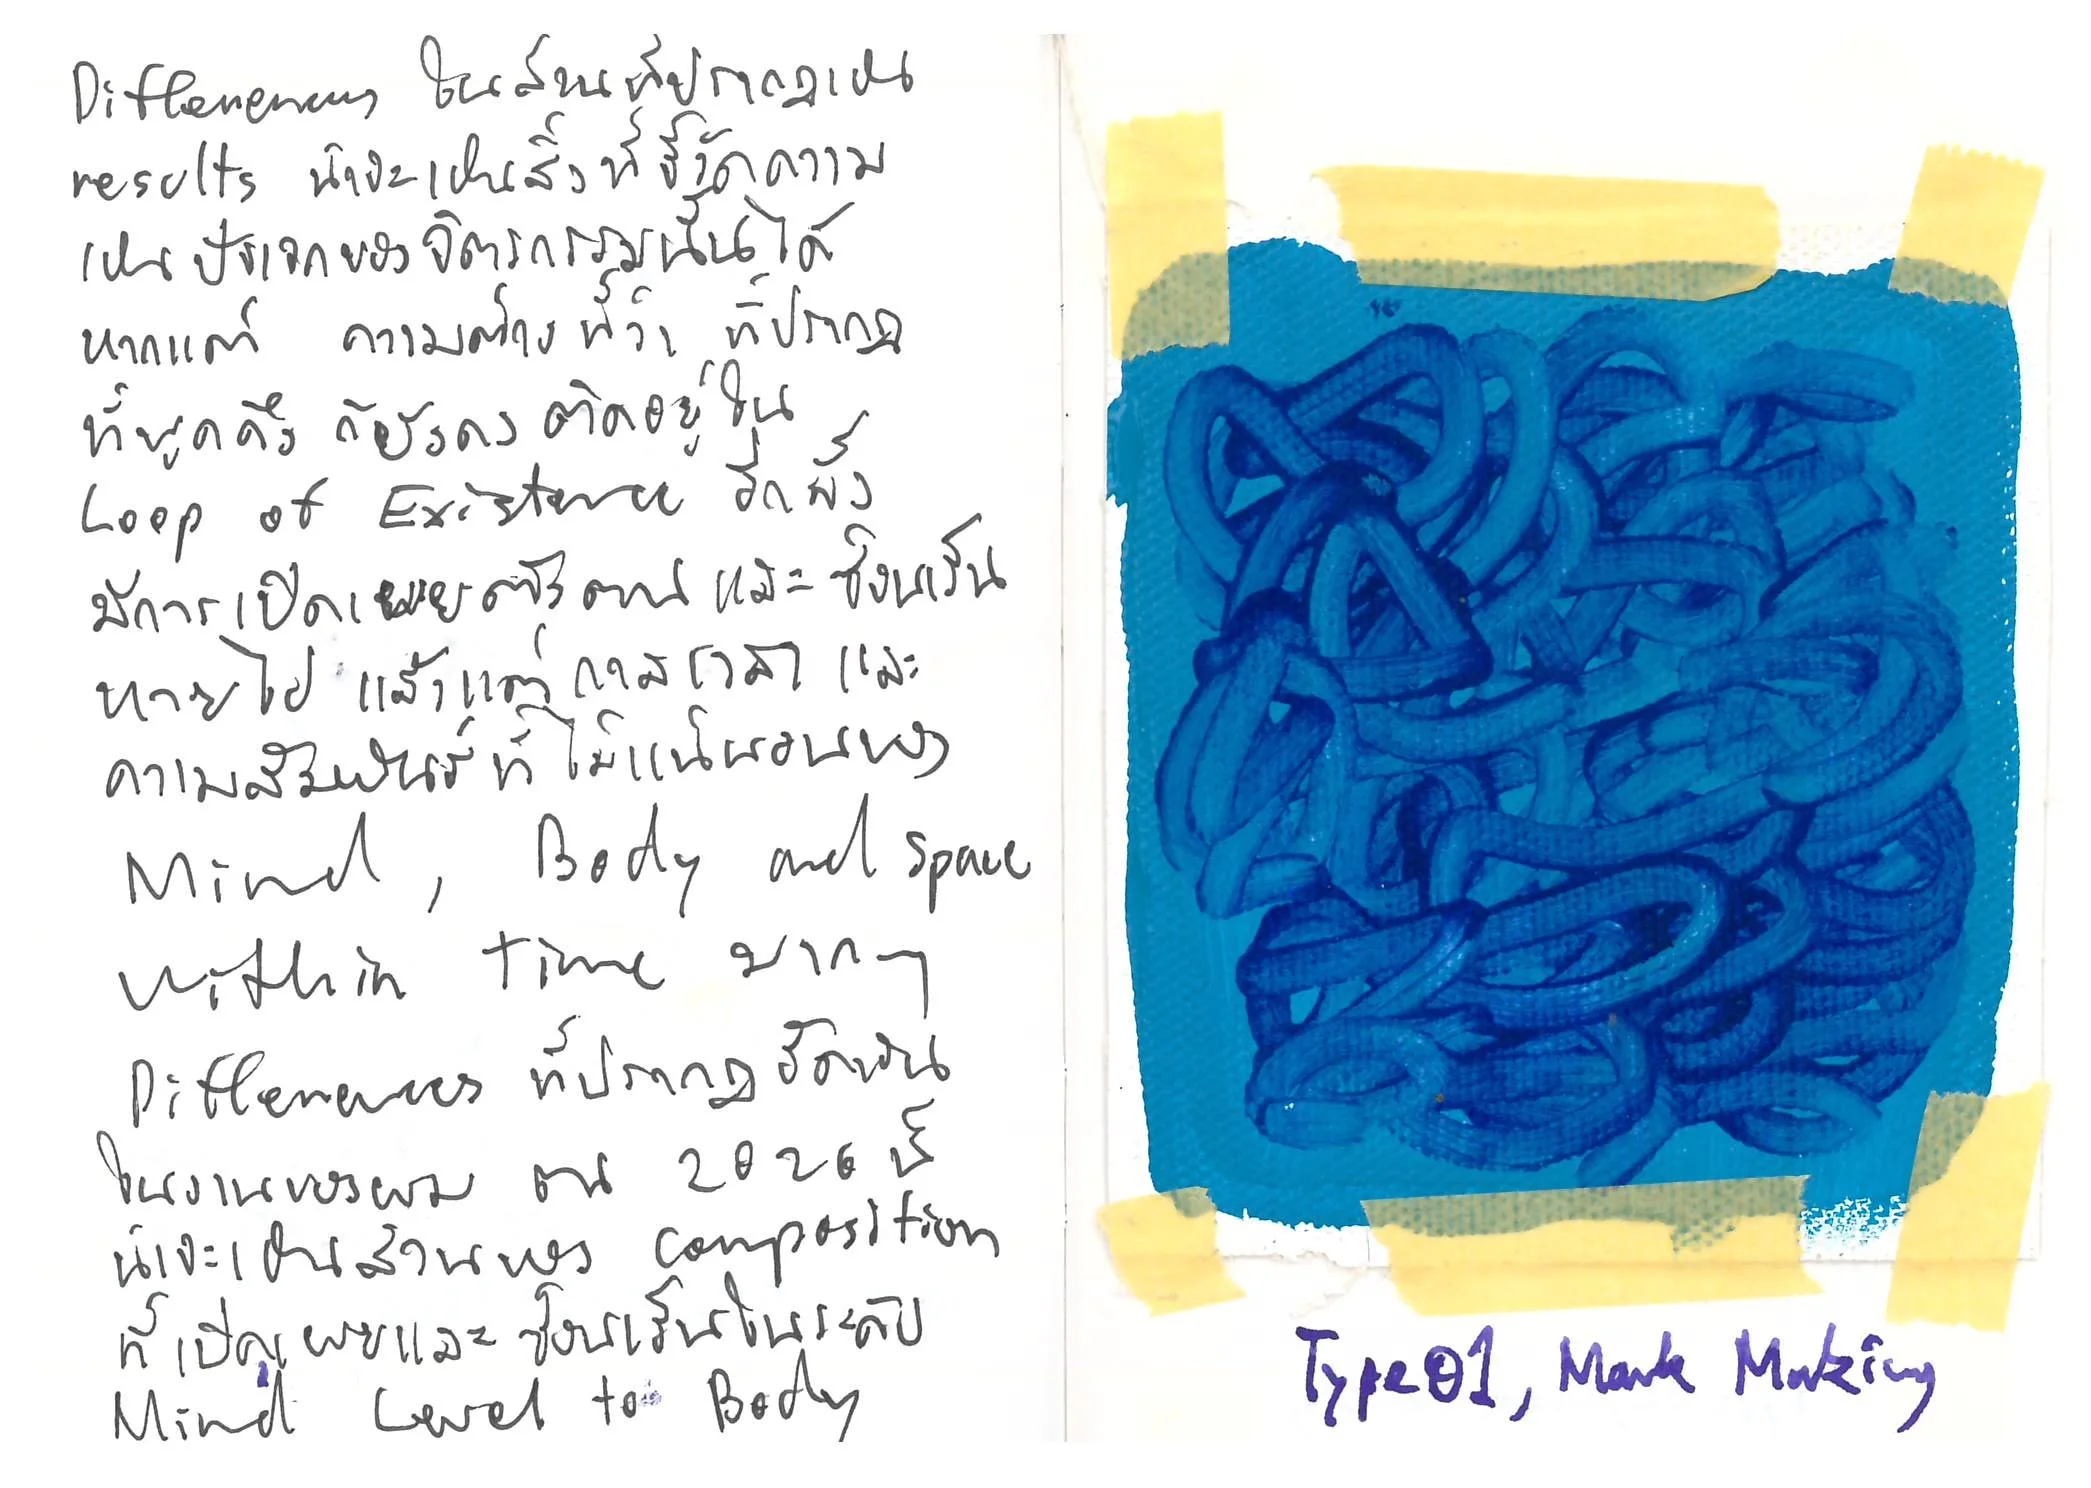 Differences ในส่วนที่ปรากฏเป็น
results น่าจะเป็นสิ่งที่ชี้วัดความ
เป็นปัจเจกของจิตรกรรมนั้นได้
หากแต่ ความต่างที่ว่า ที่ปรากฏ
ที่พูดถึง ก็ยังคง ติดอยู่ใน
Loop of Existence อีกทั้ง
มีการเปิดเผยตัวตนและซ่อนเร้น
หายไป แล้วแต่กาลเวลา และ
ความสัมพันธ์ที่ไม่แน่นอนของ
Mind, Body and Space
within time มากๆ
Differences ที่ปรากฏชัดเจน
ในงานของผม ตน 2026 นี้
น่าจะเป็นส่วนของ composition
ที่เปิดเผยและซ่อนเร้นในระดับ
Mind Level to Body
Type01, Mark Making